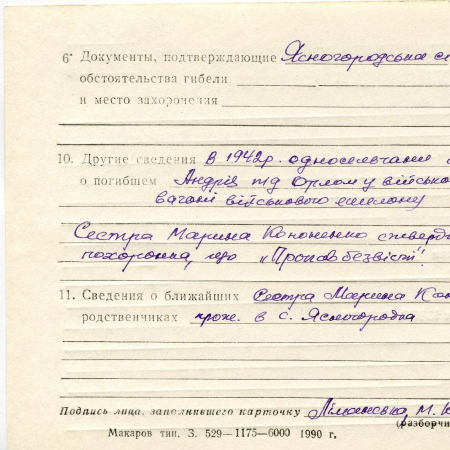 6· Документы, подтверждающие Ясногородська
обстоятельства гибели
и место захоронения
10. Другие сведения В 1942р. односельчани
о погибшем Андрія під Орлом у військо
вагоні військового ешелону
Сестра Марина Кононенко стверд
похоронка, що „Пропав безвісті"
11. Сведения о ближайших Сестра Марина Кон
родственниках прож. в с. Ясногородка
Подпись лица, заполнившего карточку М.
(разборчи
Макаров тип. З. 529—1175—6000 1990 г.